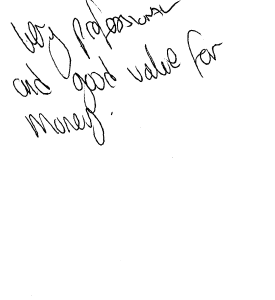 Very professional
and good value for
money.